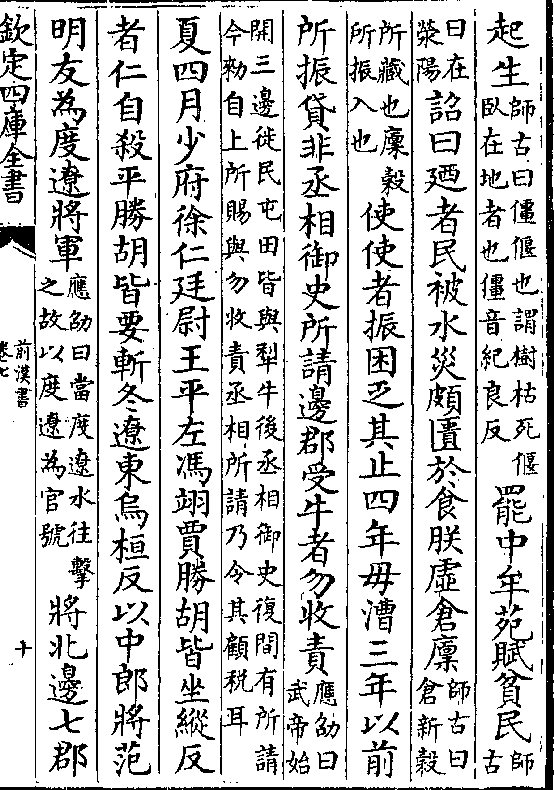 起生師古曰僵偃也謂樹枯死偃臥在地者也僵音紀良反罷中牟苑賦貧民師古
曰在滎陽詔曰廼者民被水災頗匱於食朕虛倉廩師古曰倉新穀
所藏也廩穀所振入也使使者振困乏其止四年毋漕三年以前
所振貸非丞相御史所請邊郡受牛者勿收責應劭曰武帝始
開三邊徙民屯田皆與犁牛後丞相御史復間有所請今勑自上所賜與勿收責丞相所請乃令其顧税耳
夏四月少府徐仁廷尉王平左馮翊賈勝胡皆坐縱反
者仁自殺平勝胡皆要斬冬遼東烏桓反以中郎將范
明友為度遼將軍應劭曰當度遼水往擊之故以度遼為官號將北邊七郡
欽定四庫全書
前漢書
卷七
十